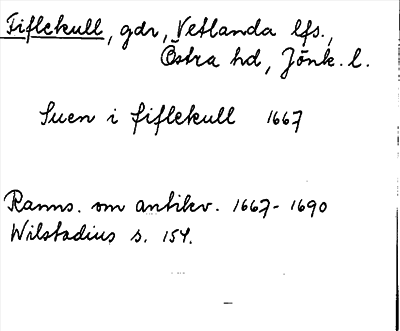 Fiflekull, gdr, Vetlanda lfs.,
Östra hd, Jönk. l.
Suen i fiflekull 1667
Ranns. om antikv. 1667-1690
Wilstadius s. 154.